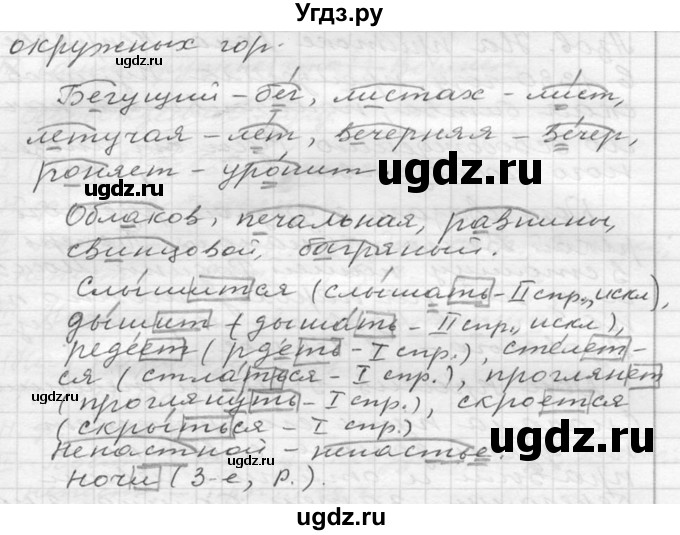 Угдз.ру
окружных гор.
Бегущий – бег, листах – лист,
летучая – лёт, вечерняя – вечер,
роняет – уронит
Облаков, печальная, равнины,
свинцовой, багряный.
Слышится (слышать – II спр., искл),
дышит (дышать – II спр., искл),
редеет (рдеть – I спр.), стелет-
ся (стлаться – I спр.), проглянет
(проглянуть – I спр.), скроется
(скрыться – I спр.)
Ненастной – ненастье.
ночи (3-е, Р.).
ugdz.ru
ugdz.ru
ugdz.ru
ugdz.ru
ugdz.ru
ugdz.ru
ugdz.ru
ugdz.ru
ugdz.ru